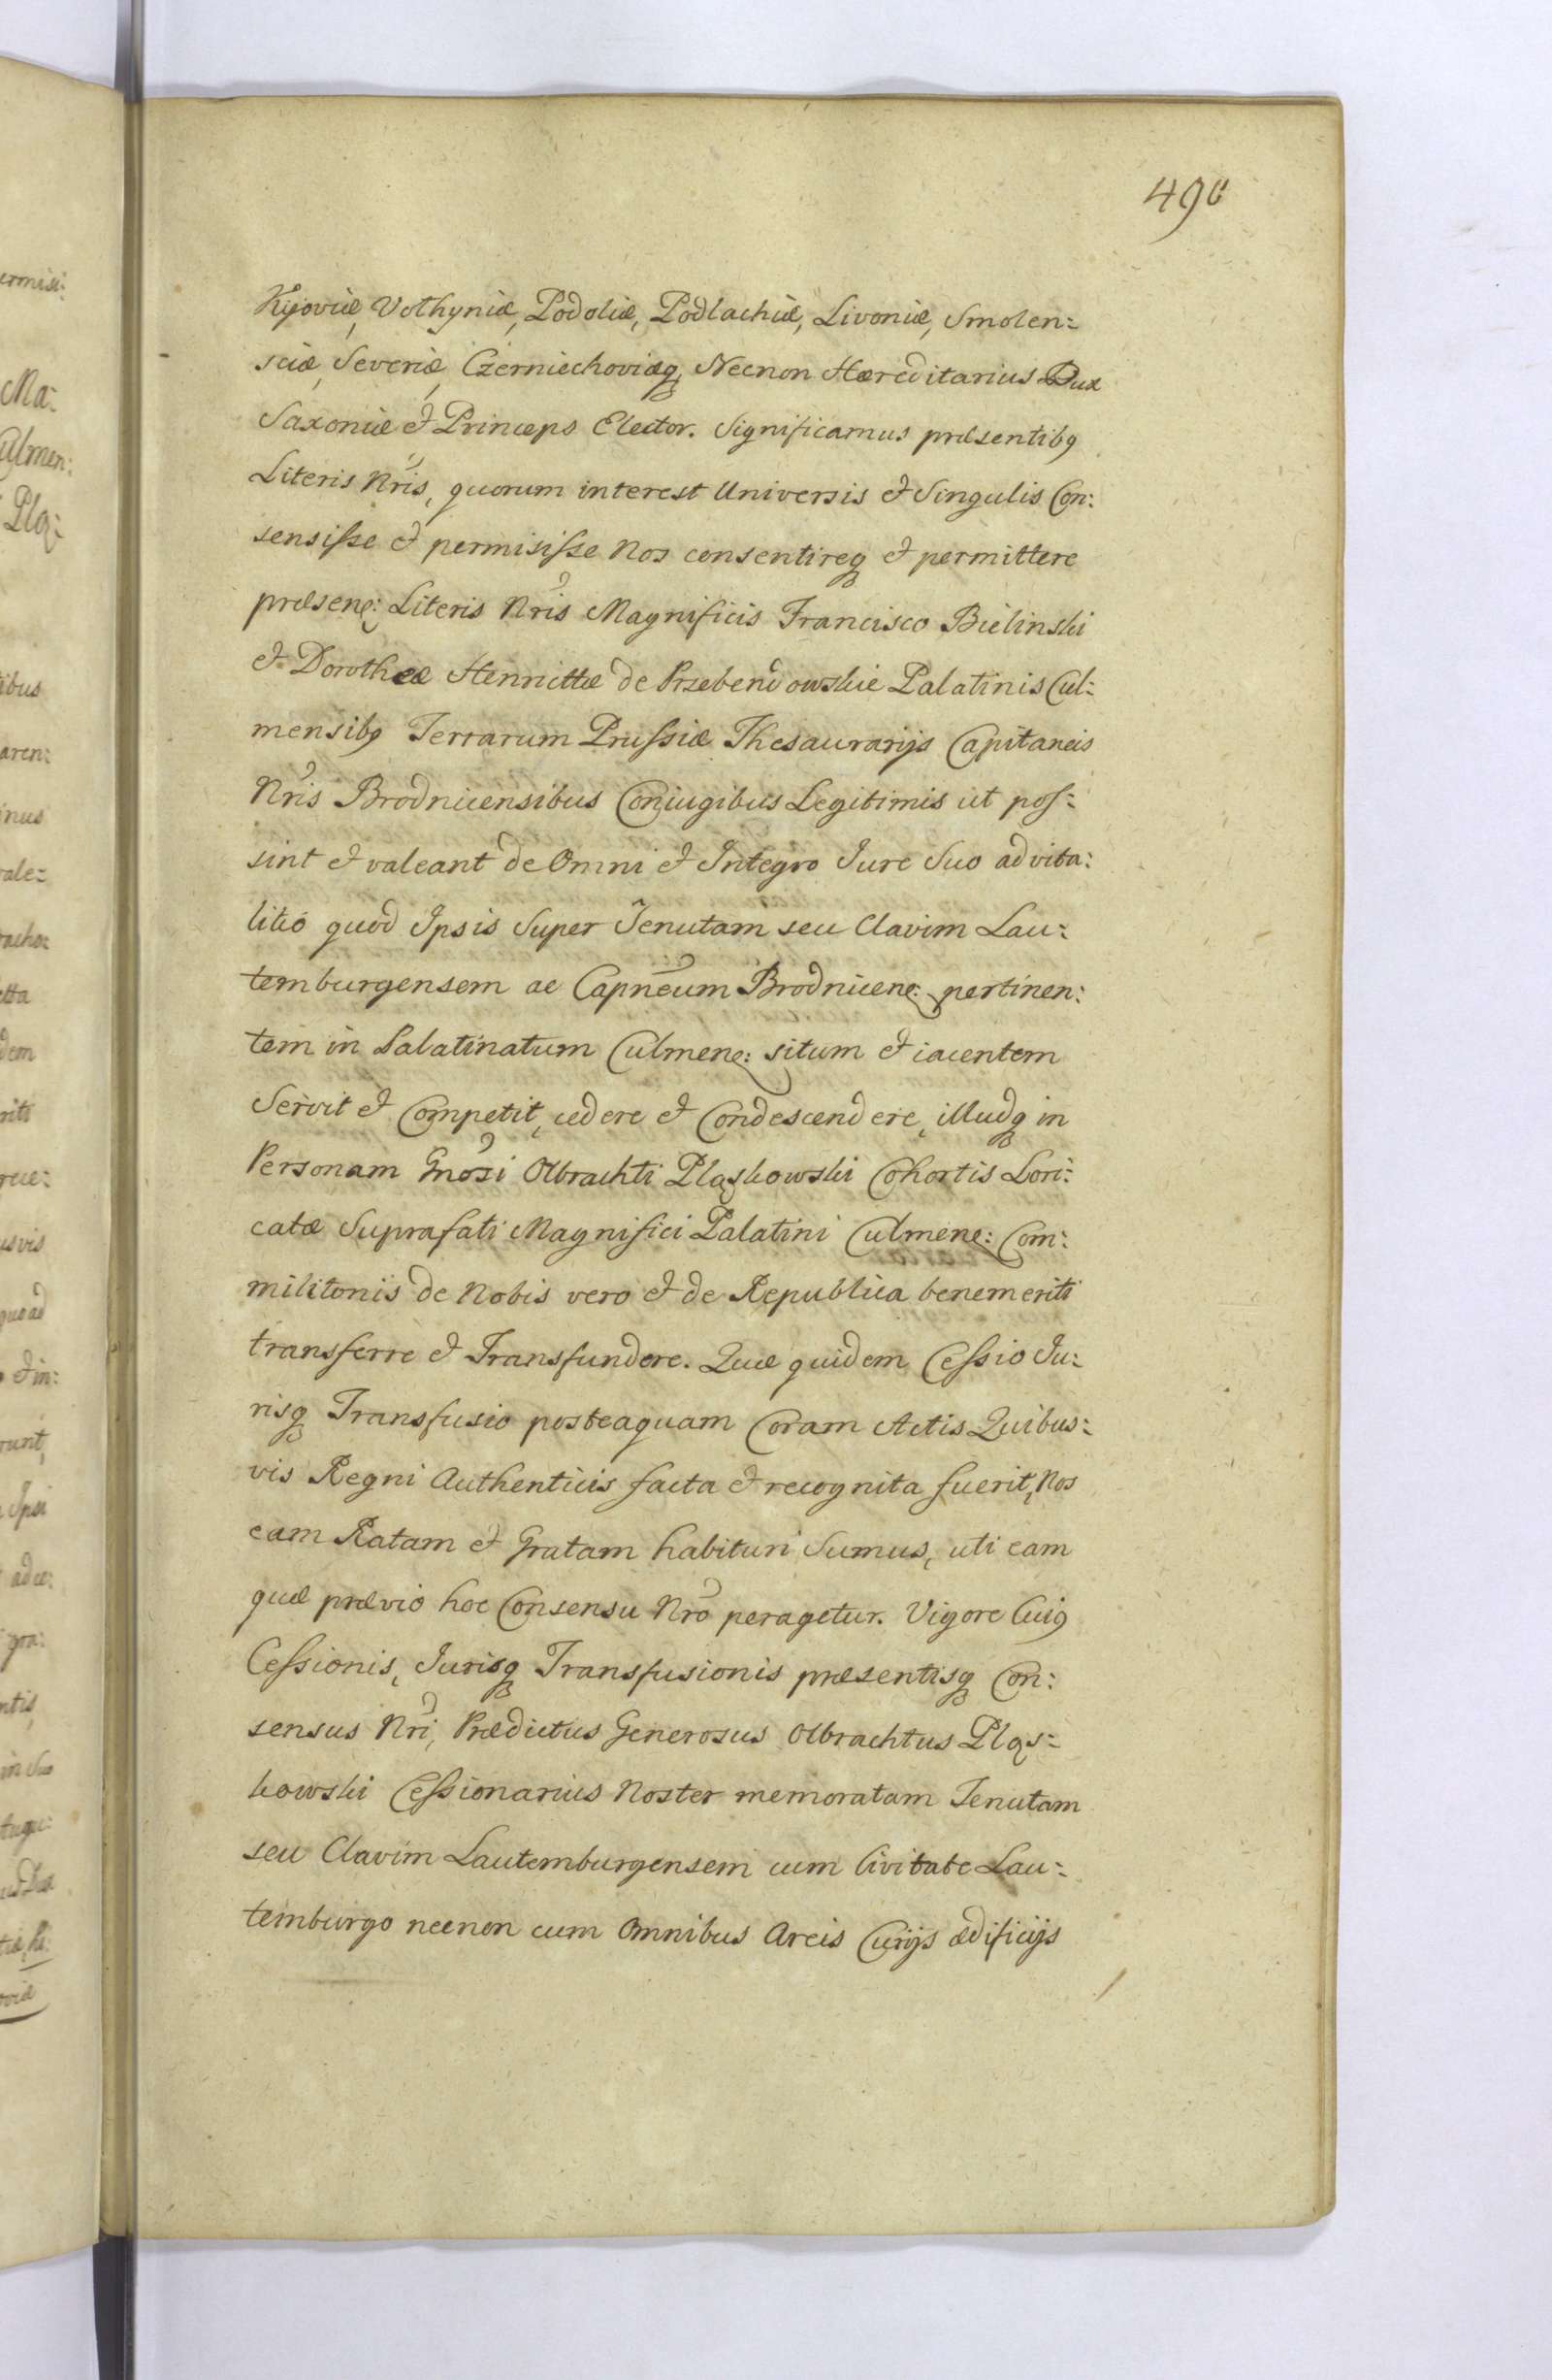 496
Kijoviæ, Volhyniæ, Podoliæ, Podlachiæ, Livoniæ, Smolen:
sciæ, Severiæ, Czerniechoviæq, Necnon Hæreditarius Dux
Saxoniæ et Princeps Elector. Significamus præsentib9
Literis Nris, quorum interest Universis et Singulis Con:
sensisse et permisisse Nos consentireq et permittere
præsene: Literis Nris Magnificis Francisco Bielinski
et Dorotheæ Henriettæ de Przebendowskie Palatinis Cul:
mensib9 Terrarum Prussiæ Thesaurarijs Capitaneis
Nris Brodnicensibus Coniugibus Legitimis ut pos:
sint et valeant de Omni et Integro Jure Suo advita:
litio quod Ipsis Super Tenutam seu Clavim Lau:
temburgensem ac Capneum Brodnicene: pertinen:
tem in Palatinatum Culmene: situm et iacentem
Servit et Competit, cedere et Condescendere, illudq in
Personam Gnosi Olbrachti Pląskowski Cohortis Lori:
catæ Suprafati Magnifici Palatini Culmene: Com:
militonis de Nobis vero et de Republica benemeriti
transferre et Transfundere. Quæ quidem Cessio Ju:
risq Transfusio posteaquam Coram Actis Quibus:
vis Regni Authenticis facta et recognita fuerit, Nos
eam Ratam et Gratam habituri Sumus, uti eam
quæ prævio hoc Consensu Nro peragetur. Vigore Cui9
Cessionis, Jurisq Transfusionis præsentisq Con:
sensus Nri, Prædictus Generosus Olbrachtus Pląs:
kowski Cessionarius Noster memoratam Tenutam
seu Clavim Lautemburgensem cum Civitate Lau:
temburgo necnon cum Omnibus Arcis Curijs ædificijs